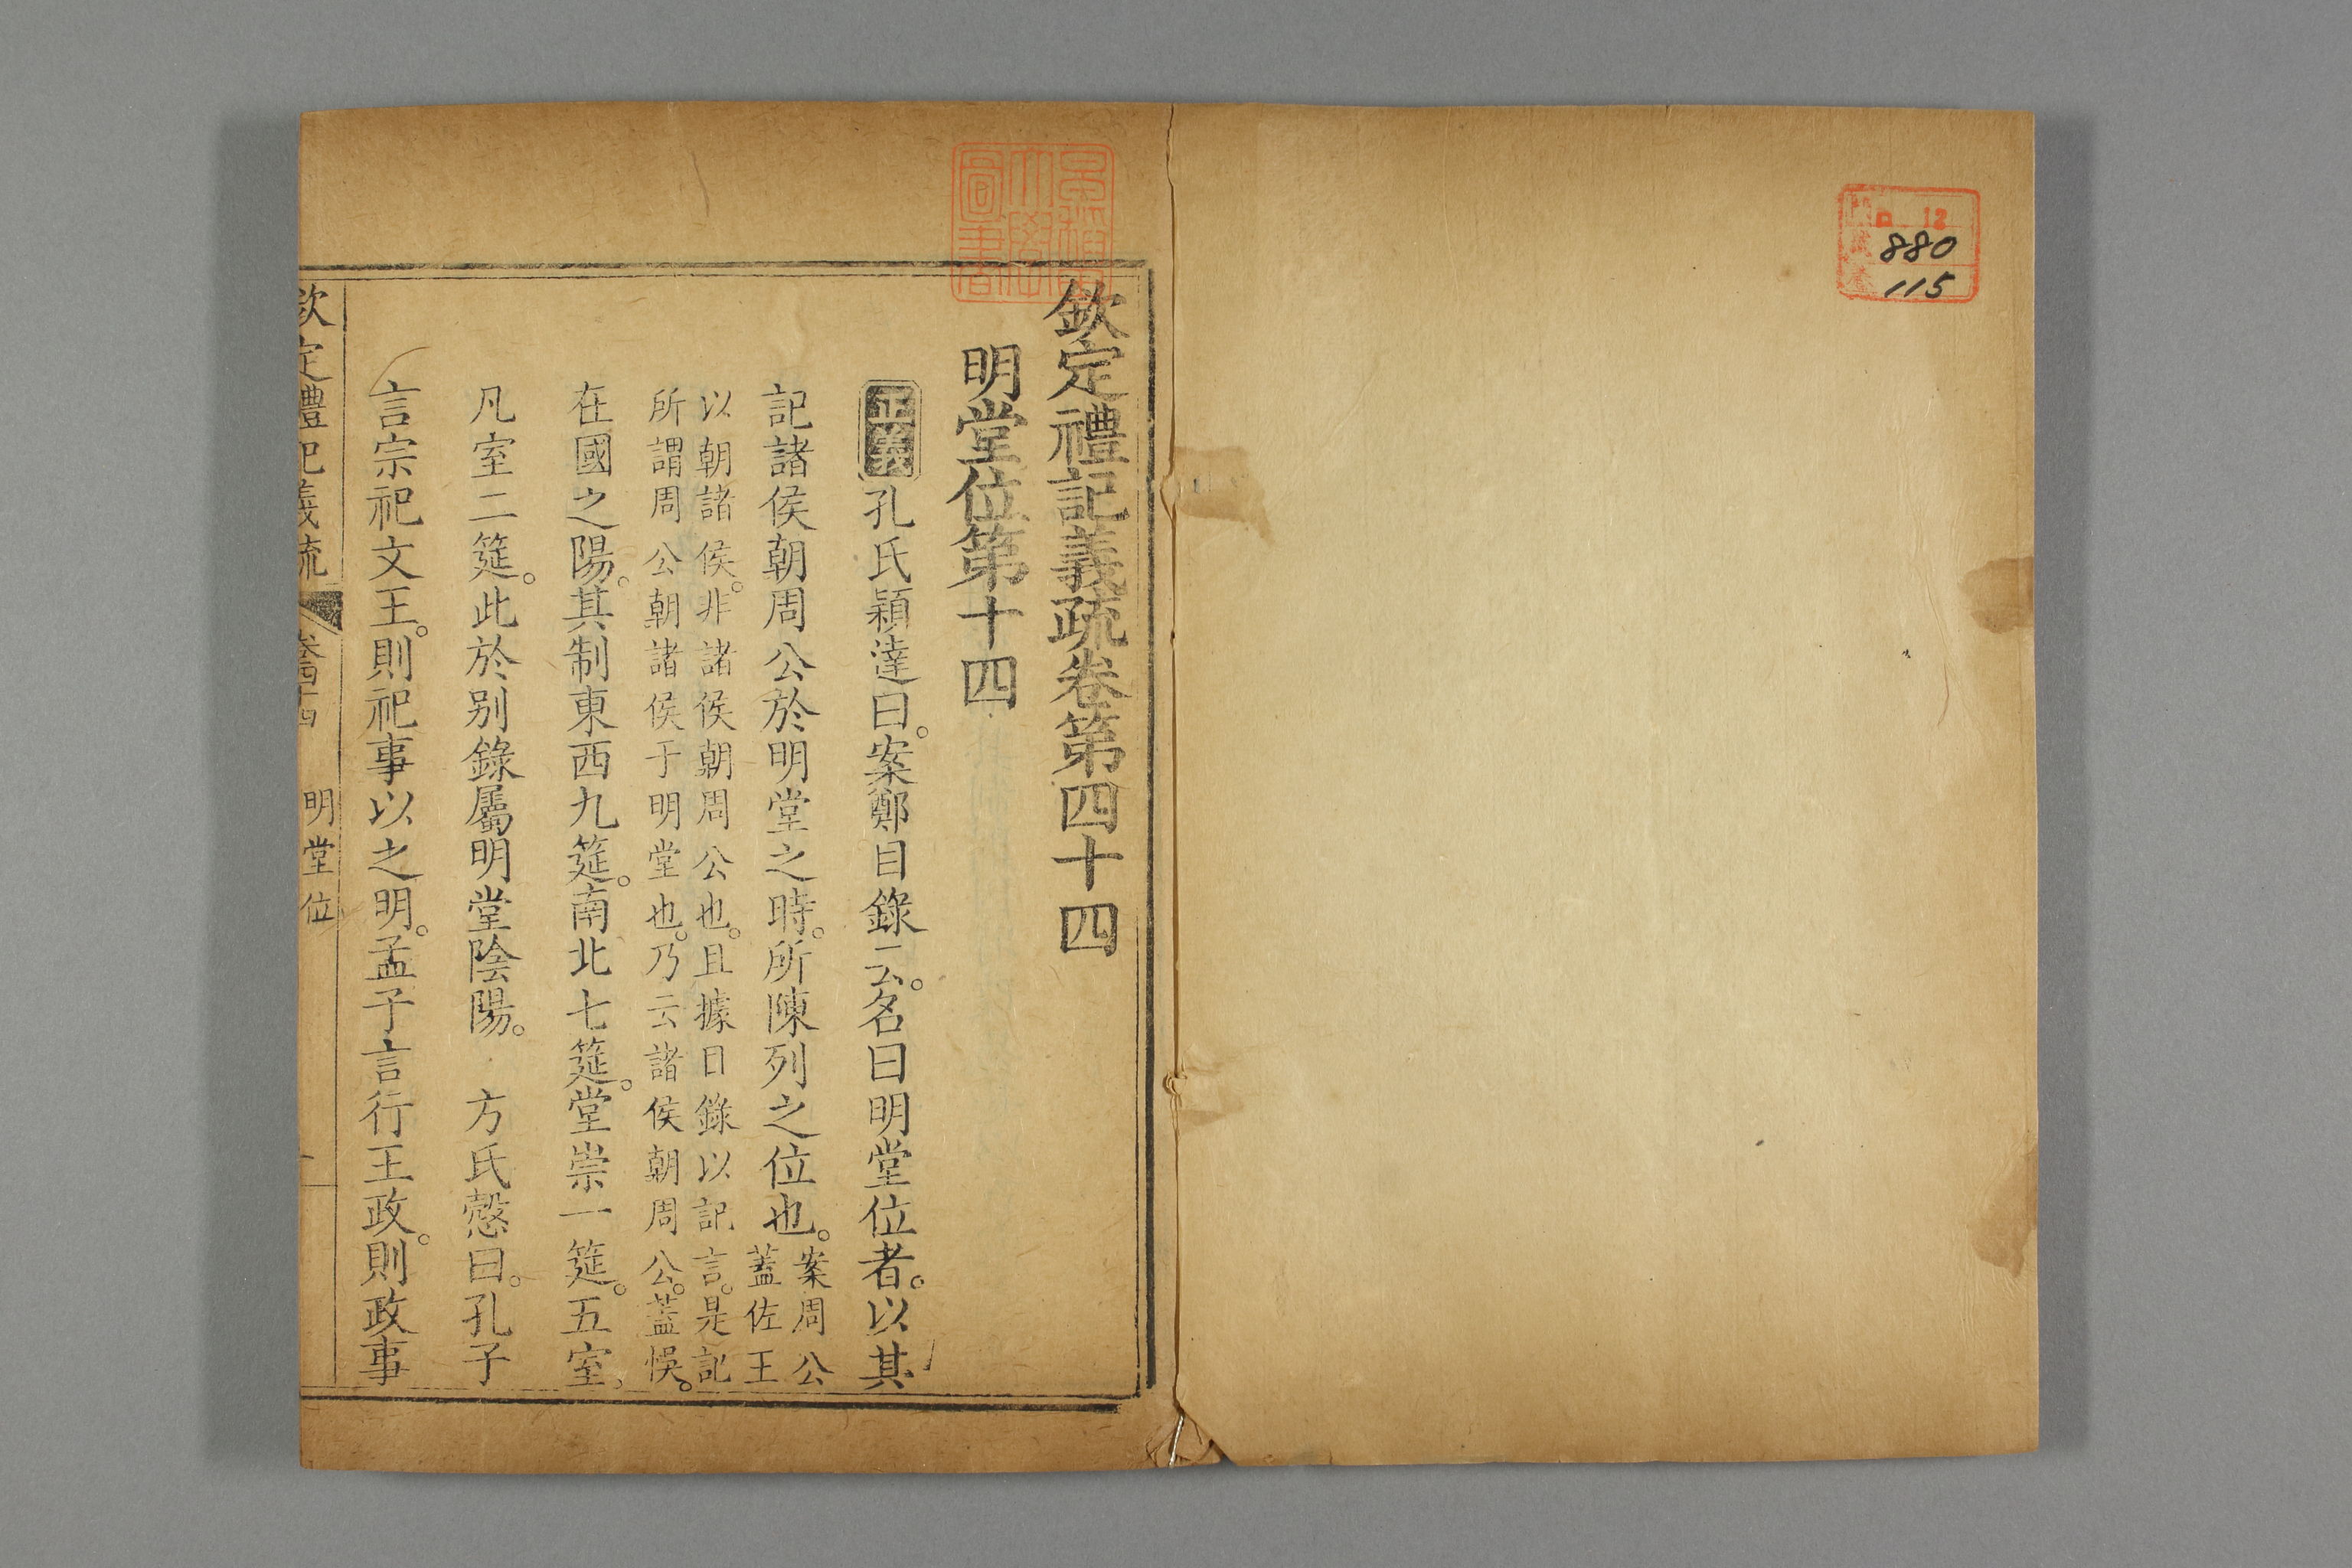 ロ 12
880
115
欽定禮記義疏卷第四十四
明堂位第十四
正義孔氏穎達曰。案鄭目錄云。名曰明堂位者。以其
記諸侯朝周公於明堂之時。所陳列之位也。案周公
蓋佐王
以朝諸侯。非諸侯朝周公也。且據目錄以記言。是記
所謂周公朝諸侯于明堂也。乃云諸侯朝周公。蓋悞。
在國之陽。其制東西九筵。南北七筵。堂崇一筵。五室。
凡室二筵。此於別錄屬明堂陰陽。 方氏慤曰。孔子
言宗祀文王。則祀事以之明。孟子言行王政。則政事
欽定禮記義疏 卷四十四 明堂位